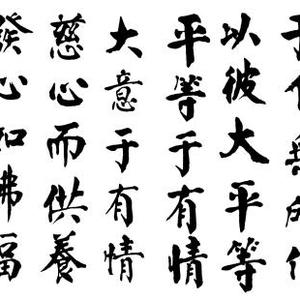 以彼大平等
平等于有情
大意于有情
慈心而供養
發心如佛福